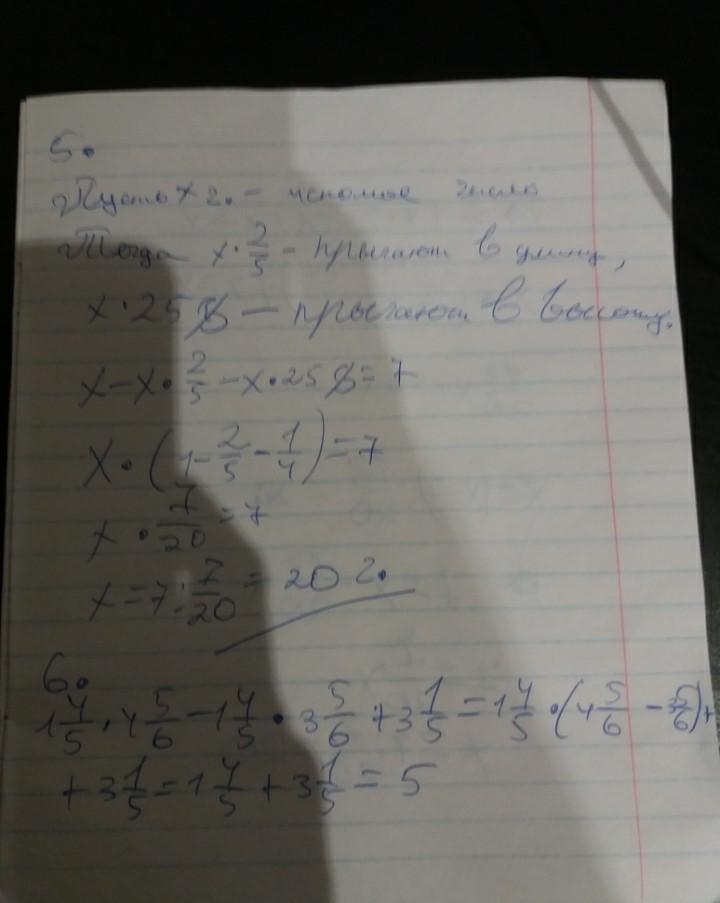 5.
Пусть x г. - искомое число
Тогда x · 2/5 - прыгают в длину,
x · 25% — прыгают в высоту.
x - x · 2/5 - x · 25% = 7
x · (1 - 2/5 - 1/4) = 7
x · 7/20 = 7
x = 7 : 7/20 = 20 г.
6.
1 4/5 · 4 5/6 - 1 4/5 · 3 5/6 + 3 1/5 = 1 4/5 · (4 5/6 - 3 5/6) +
+ 3 1/5 = 1 4/5 + 3 1/5 = 5